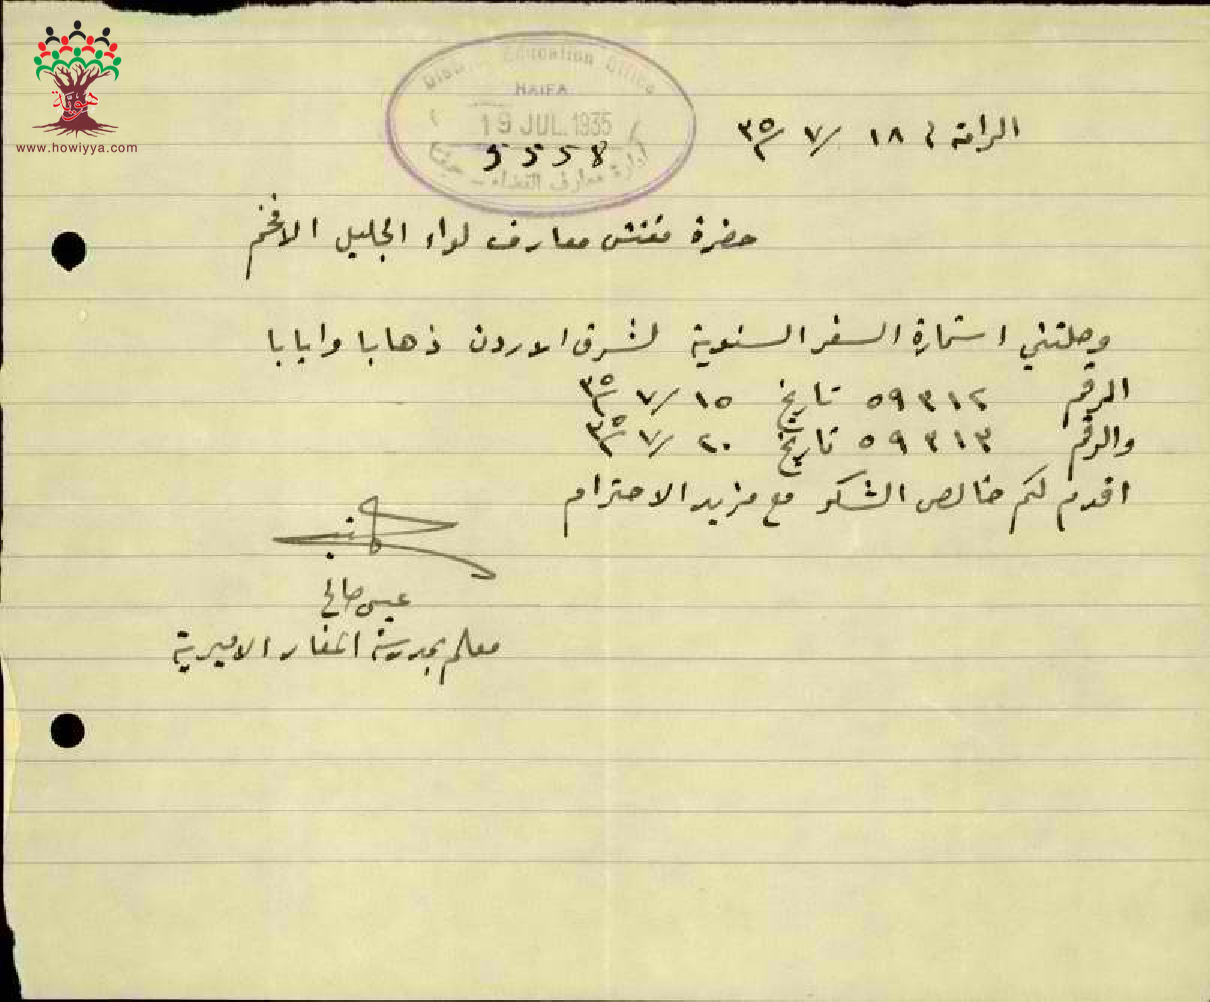 هوية
www.howiyya.com
District Education Office
HAIFA
19 JUL. 1935
5558
ادارة معارف القضاء - حيفا
الرامة في ١٨ / ٧ / ٣٥
حضرة مفتش معارف لواء الجليل الافخم
وصلتني استمارة السفر السنوية لشرق الاردن ذهابا وايابا
الرقم ٥٩٣١٢ تاريخ ١٥ / ٧ / ٣٥
والرقم ٥٩٣١٣ تاريخ ٢٠ / ٧ / ٣٥
اقدم لكم خالص الشكر مع مزيد الاحترام
عيسى صالح
معلم بمدرسة المغار الاميرية